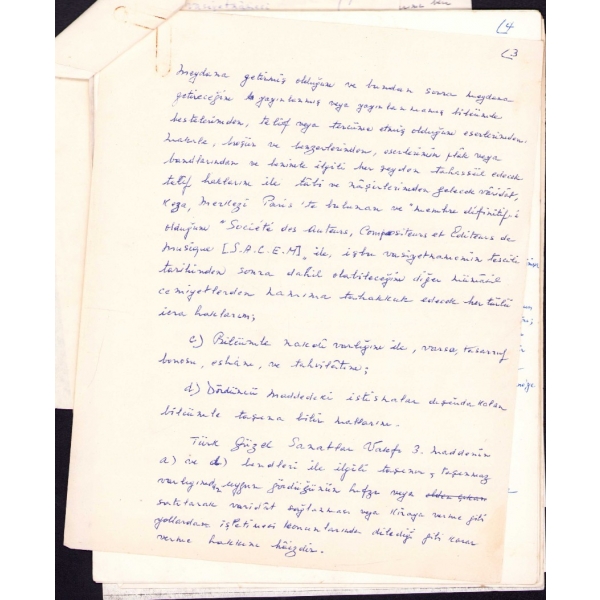 (4
(3
meydana getirmiş olduğum ve bundan sonra meydana
getireceğim yayınlanmış veya yayınlanmamış bilcümle
bestelerimden, telif veya tercüme etmiş olduğum eserlerimden.
makale, broşür ve benzerlerinden, eserlerimin plâk veya
bandlarından ve benimle ilgili her şeyden tahassül edecek
telif haklarım ile tâbi ve nâşirlerimden gelecek vâridât,
Keza, Merkezi Paris'te bulunan ve "membre définitif-i
olduğum "Société des Auteurs, Compositeurs et Editeurs de
musique [S.A.C.E.M], ile, işbu vasiyetnamenin tescili
tarihinden sonra dahil olabileceğim diğer mümâsil
cemiyetlerden namıma tahakkuk edecek her türlü
icra haklarım;
c) Bilcümle nakdî varlığım ile, varsa, tasarruf
bonosu, eshâm, ve tahvilâtım;
d) Dördüncü maddedeki istisnalar dışında kalan
bilcümle taşına bilir mallarım.
Türk Güzel Sanatlar Vakfı 3. maddenin
a) ve d) bendleri ile ilgili taşınır, taşınmaz
varlığımdan uygun gördüğünün hıfzı veya
satılarak varidât sağlanması veya kiraya verme gibi
yollardan işletilmesi konularında dilediği gibi karar
verme hakkını hâizdir.